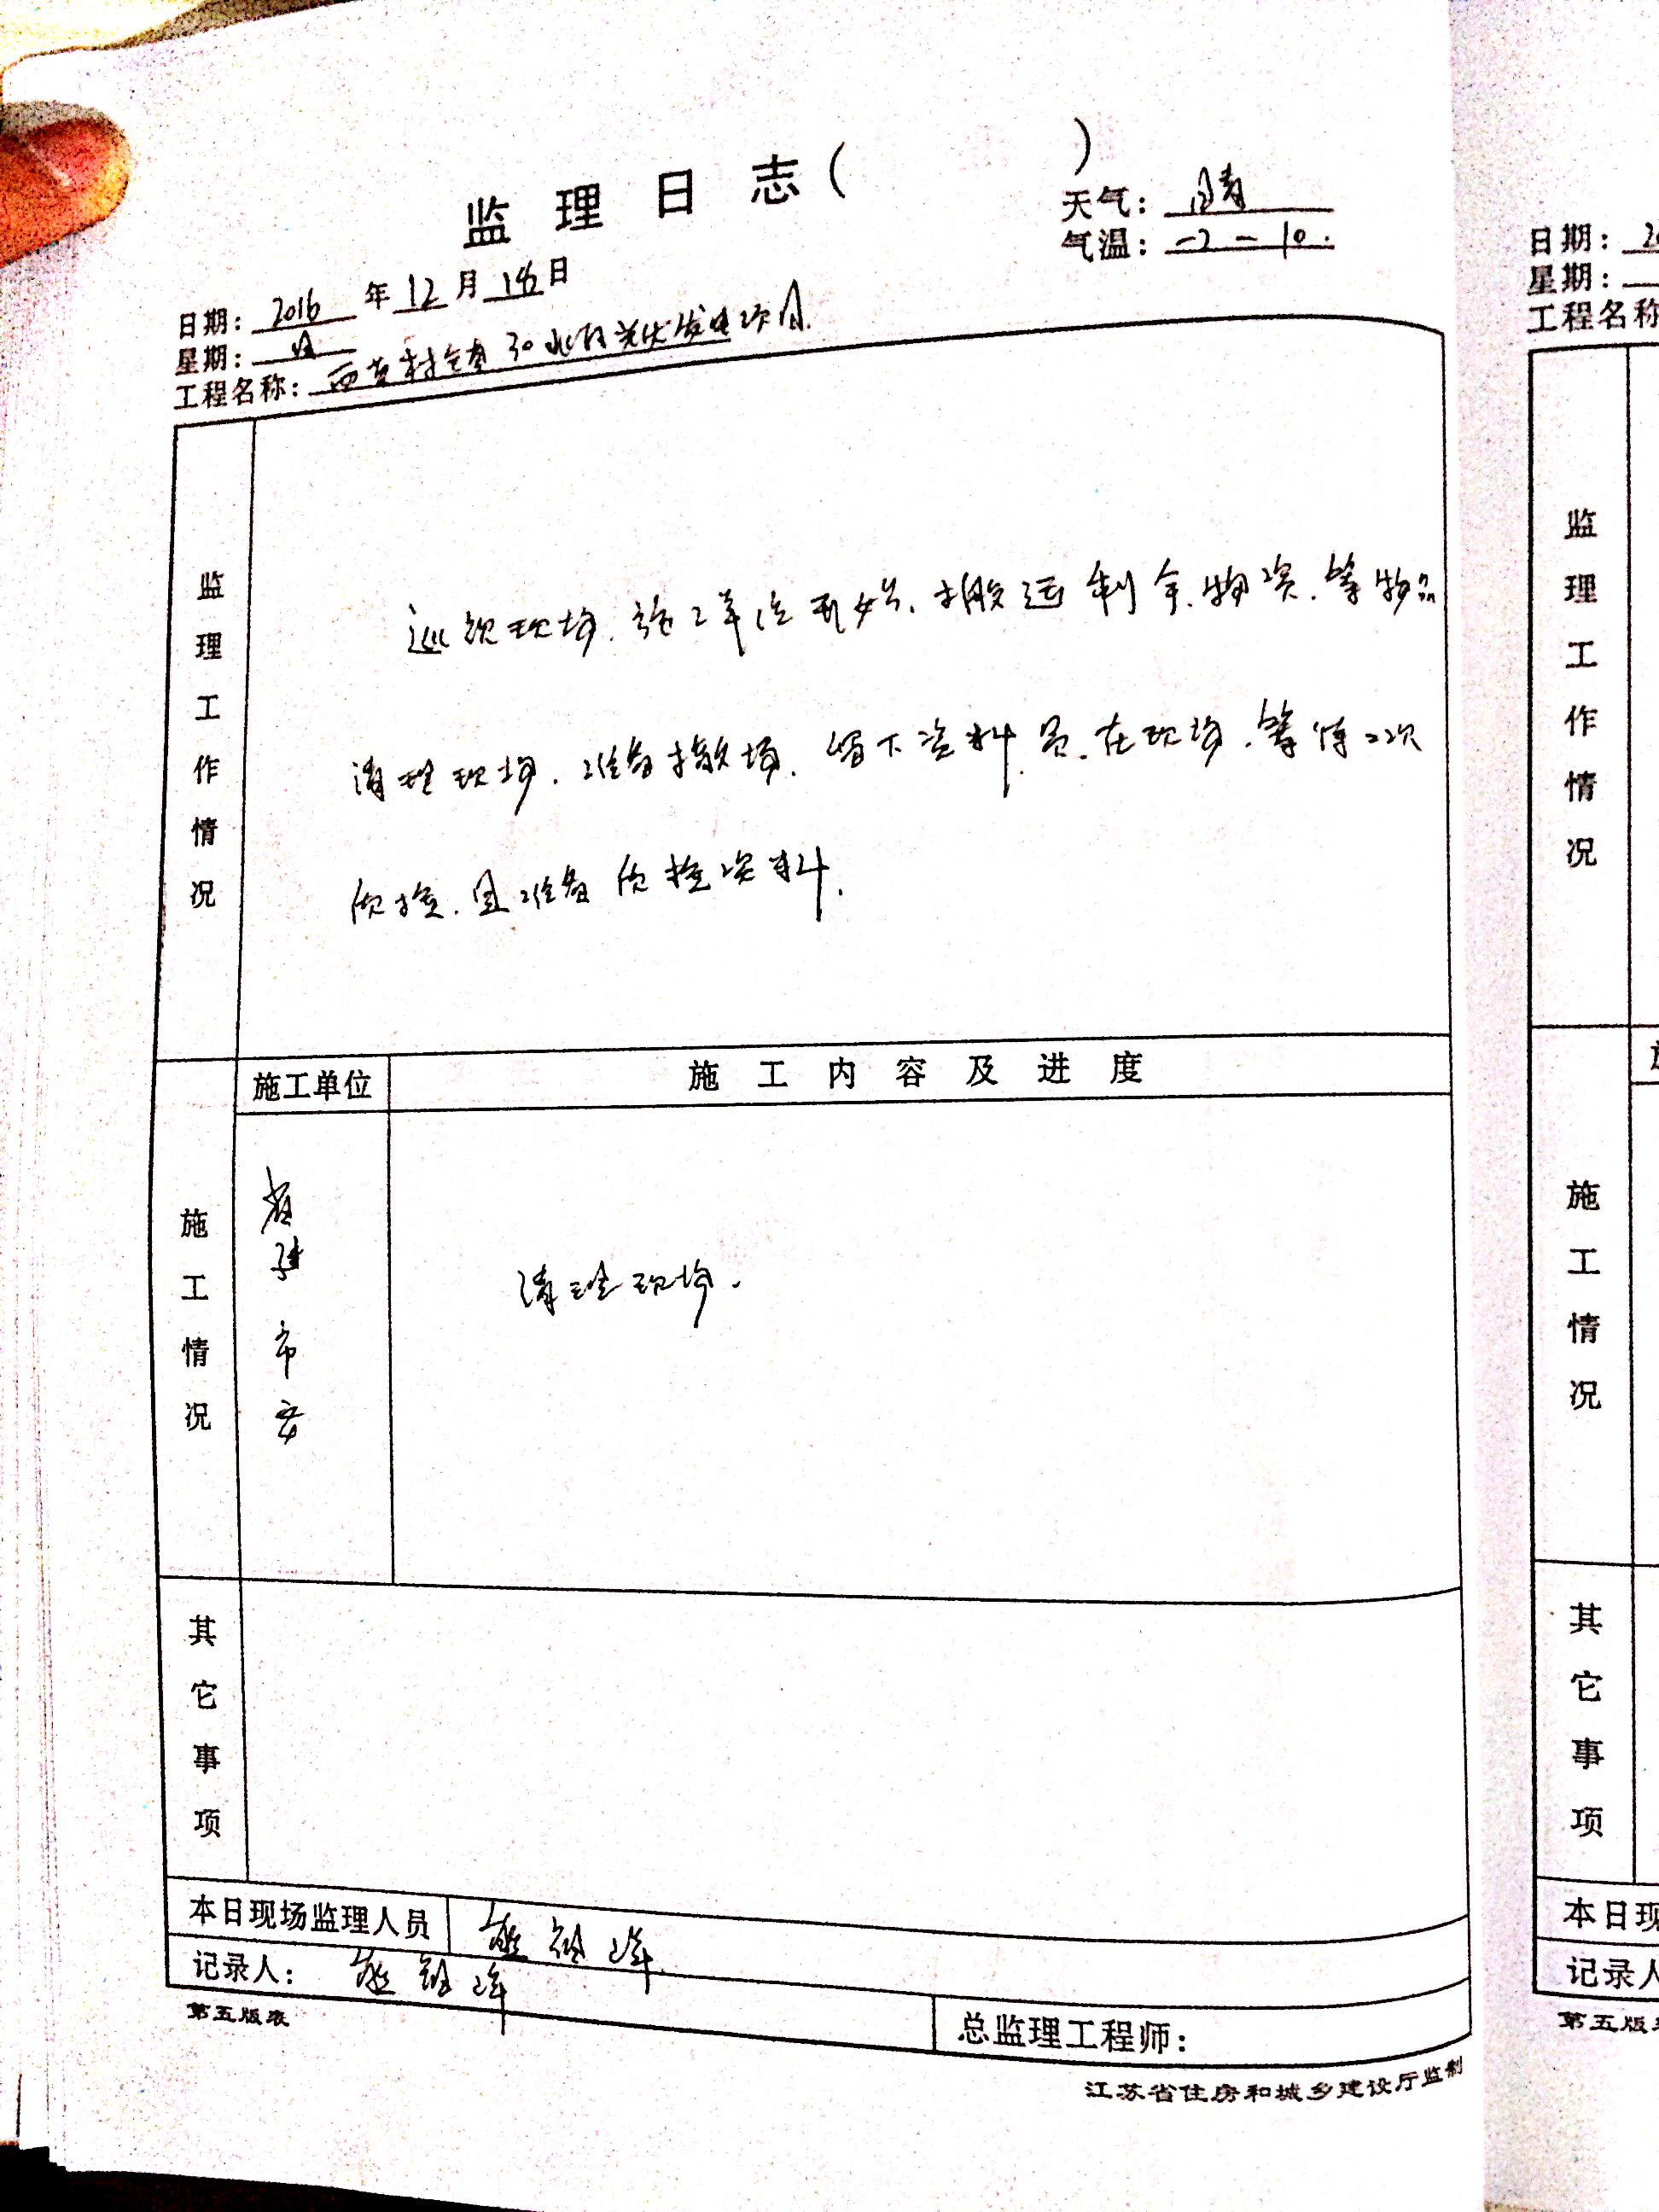 监理日志( )
天气：晴
气温：-2-10.
日期：2016年12月 日
星期：
工程名称：西 村镇30 光伏发电项目.
监理工作情况
巡视现场.施工单位 .搬运剩余.物资.等物品
清理现场.准备撤场.留下资料员.在现场.等待二次
质检.且准备质检资料.
施工情况
施工单位
施工内容及进度
省建
市安
清理现场.
其它事项
本日现场监理人员
记录人：
总监理工程师：
第五版表
江苏省住房和城乡建设厅监制
日期：2
星期：
工程名称
监理工作情况
施工情况
其它事项
本日现
记录人
第五版